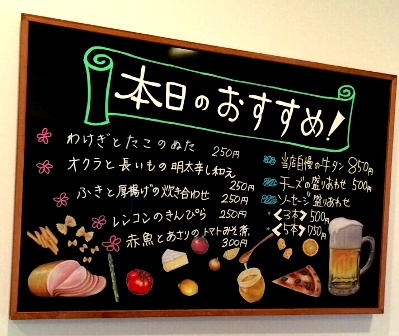 本日のおすすめ!
わけぎとたこのぬた 250円
オクラと長いもの明太辛し和え 250円
ふきと厚揚げの炊き合わせ 250円
レンコンのきんぴら 250円
赤魚とあさりのトマトみそ煮 300円
当店自慢の牛タン 850円
チーズの盛りあわせ 500円
ソーセージ盛りあわせ
<3本>500円
<5本>750円